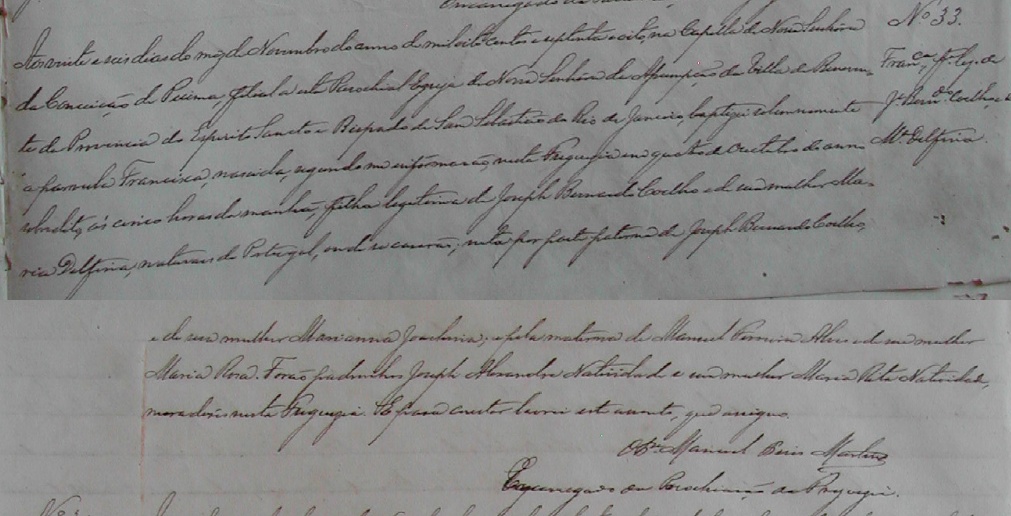 Nº 33.
Franca, f. leg. de
Je Berndo Coelho, e
Ma Delfina.
Aos vinte e seis dias do mez de Novembro do anno de mil oito centos e setenta e oito, na Capella de Nossa Senhora
da Conceição de Piuma, filial a esta Parochial Egreja de Nossa Senhora da Assumpção da Villa de Beneven-
te da Provincia do Espirito Sancto e Bispado de San Sebastião do Rio de Janeiro, baptizei solemnemente
a parvula Francisca, nascida, segundo me informarão, nesta Freguezia em quatro de Outubro do anno
sobredito, ás cinco horas da manhã, filha legitima de Joseph Bernardo Coelho e de sua mulher Ma-
ria Delfina, naturaes de Portugal, onde se casarão; neta por parte paterna de Joseph Bernardo Coelho,
e de sua mulher Marianna; e pela materna de Manuel Ferreira e de sua mulher
Maria Rosa. Forão padrinhos Joseph Alexandre Natividade e sua mulher Maria Rita Natividade,
moradores nesta Freguezia. E para constar lavrei este assento, que assigno.
O Pe Manuel Martins
Encarregado da Parochiação da Freguezia.